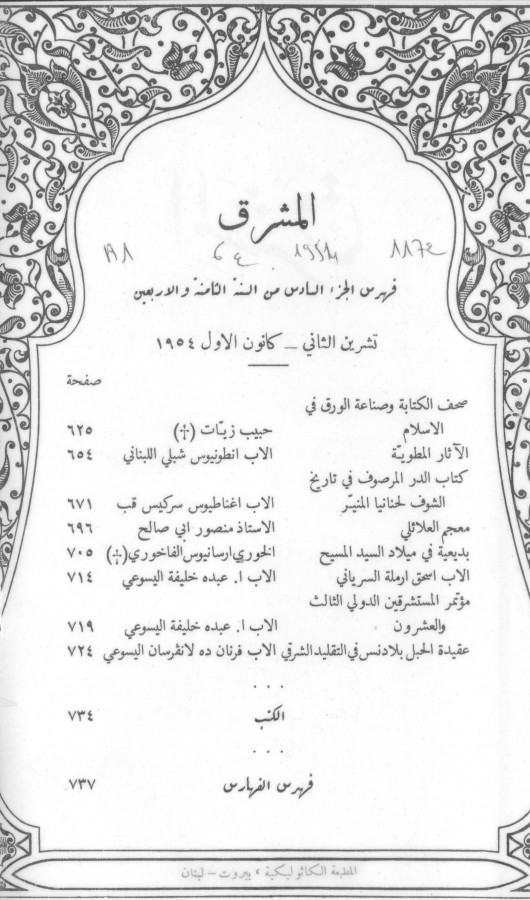 المشرق
فهرس الجزء السادس من السنة الثامنة والاربعين
تشرين الثاني – كانون الاول ١٩٥٤
صفحة
صحف الكتابة وصناعة الورق في
الاسلام حبيب زيّات (†) ٦٢٥
الآثار المطويّة الاب انطونيوس شبلي اللبناني ٦٥٤
كتاب الدر المرصوف في تاريخ
الشوف لحنانيا المنيّر الاب اغناطيوس سركيس قب ٦٧١
معجم العلائلي الاستاذ منصور ابي صالح ٦٩٦
بديعية في ميلاد السيد المسيح الخوري ارسانيوس الفاخوري (†) ٧٠٥
الاب اسحق ارملة السرياني الاب ا. عبده خليفة اليسوعي ٧١٤
مؤتمر المستشرقين الدولي الثالث
والعشرون الاب ا. عبده خليفة اليسوعي ٧١٩
عقيدة الحبل بلا دنس في التقليد الشرقي الاب فرنان ده لانڤرسان اليسوعي ٧٢٤
. . .
الكتب ٧٣٤
. . .
فهرس الفهارس ٧٣٧
المطبعة الكاثوليكية ، بيروت – لبنان